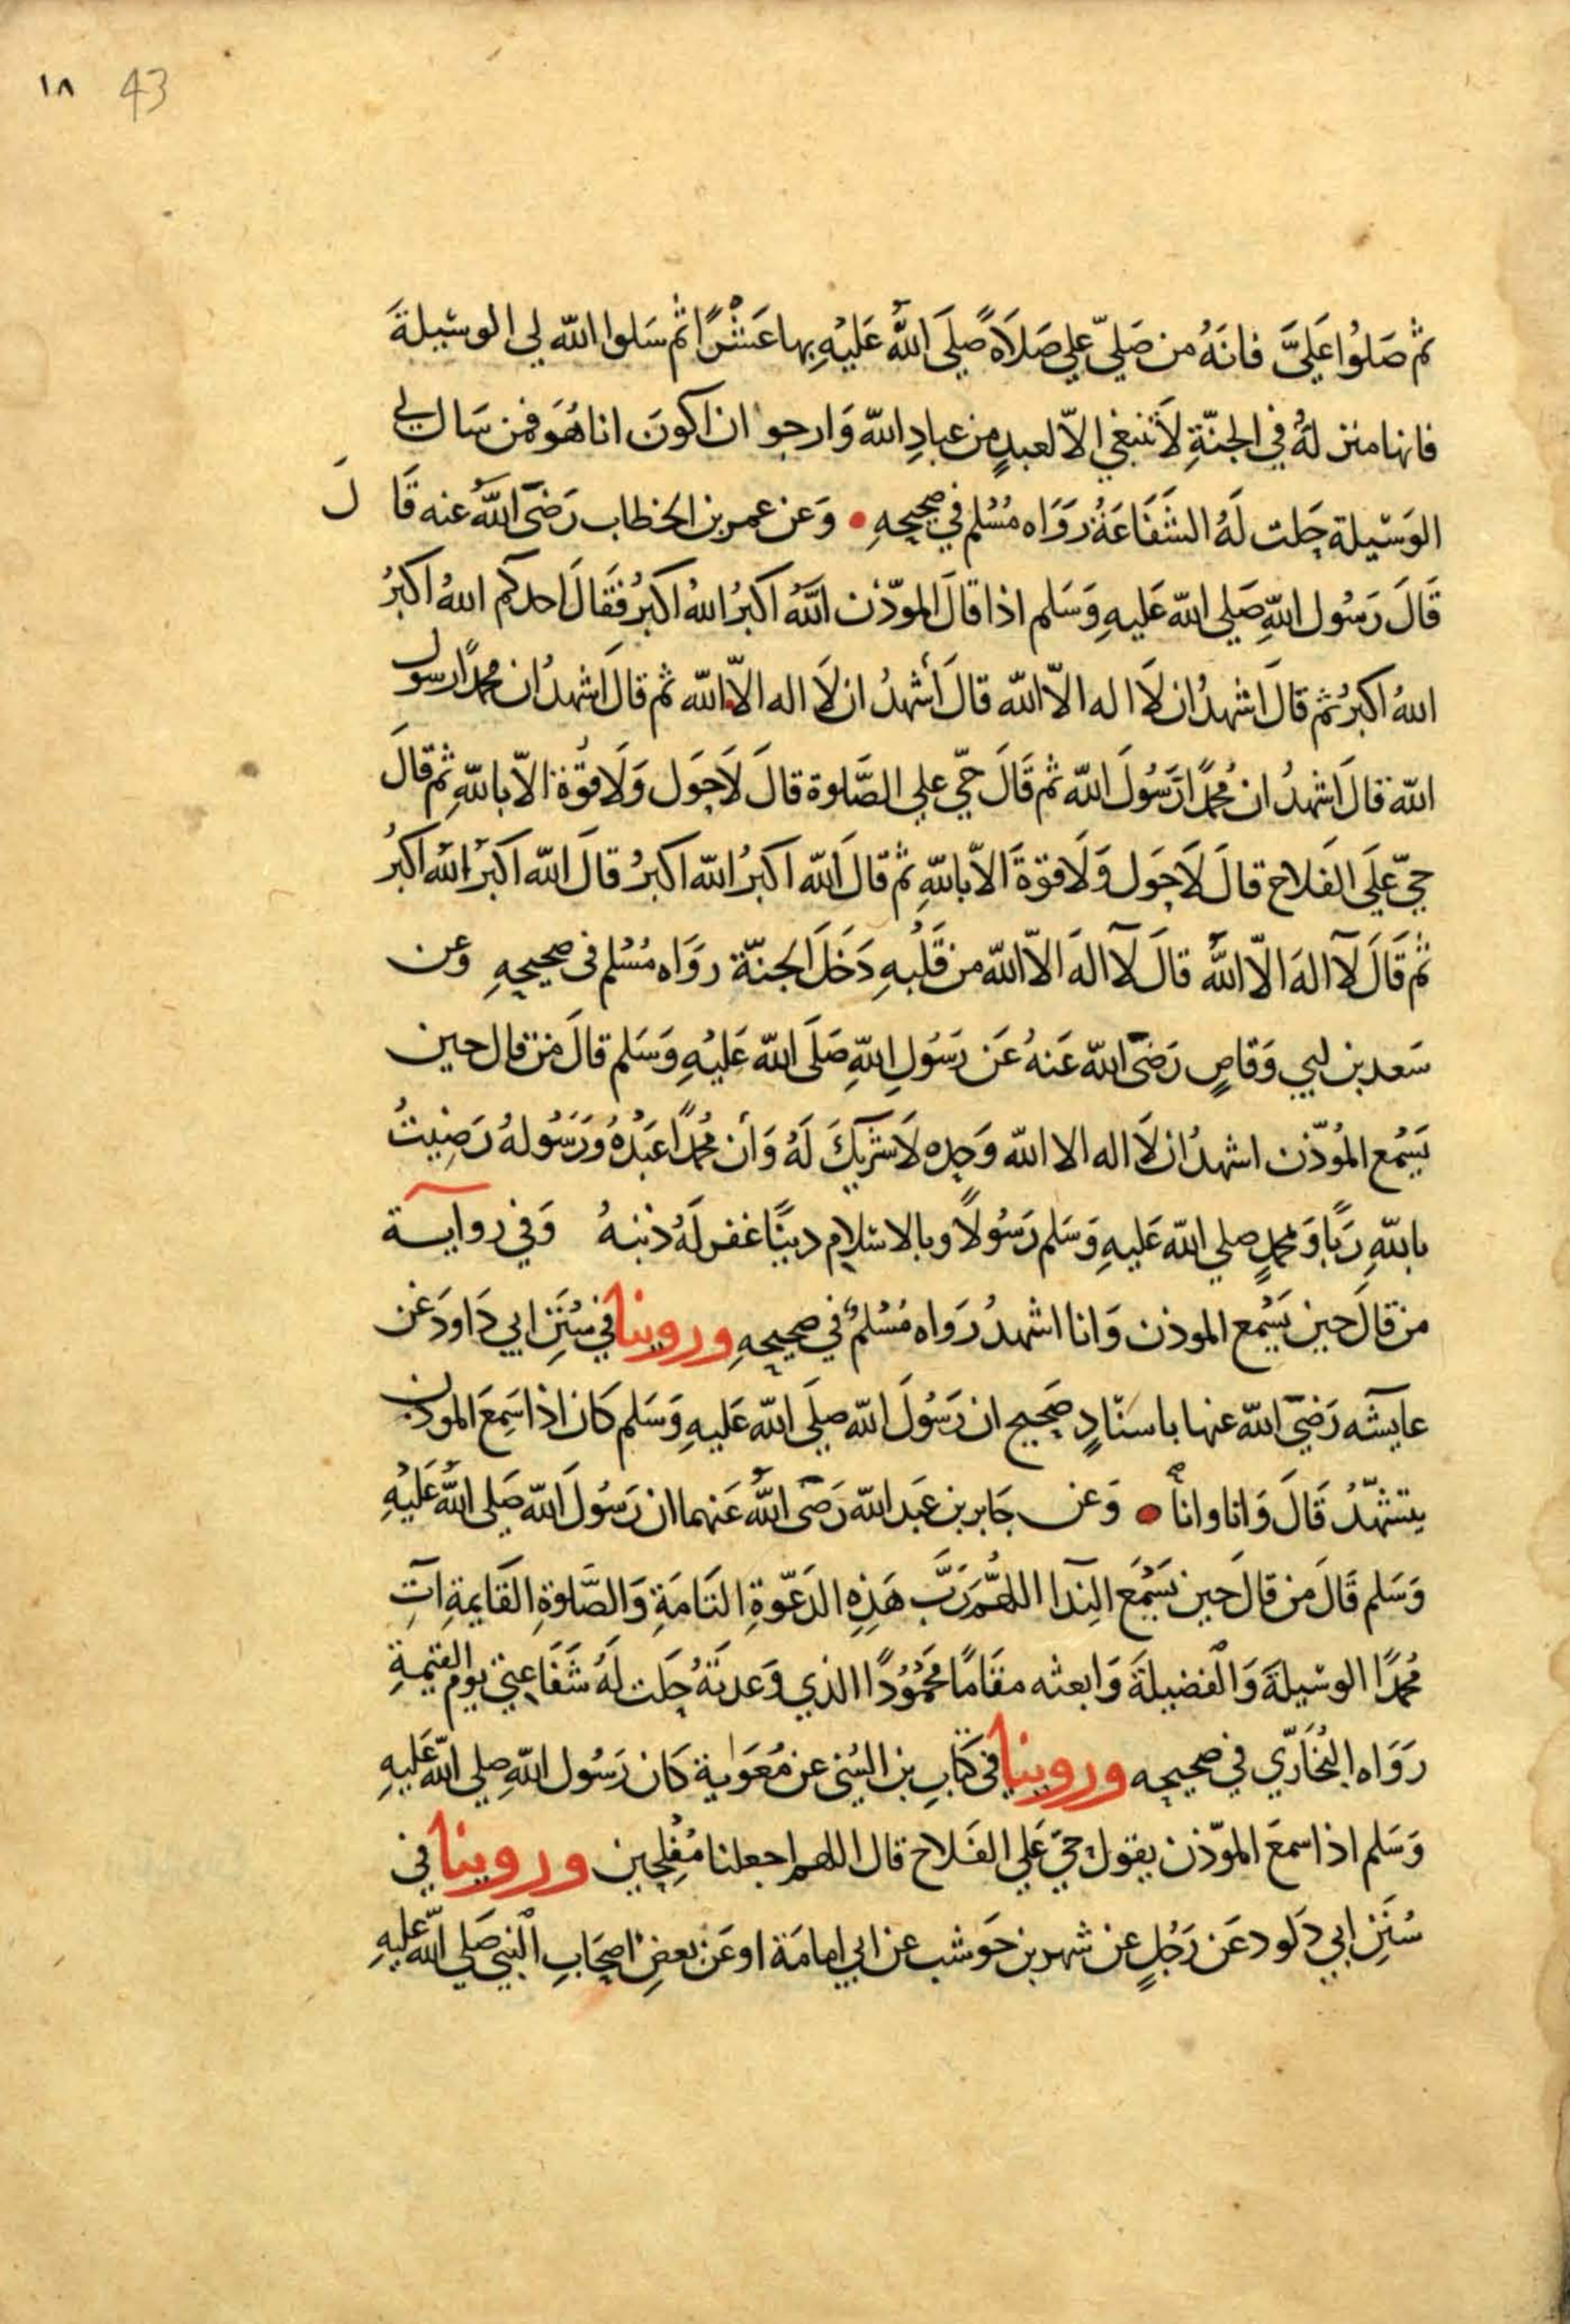 ١٨ 43
ثم صَلوُا عَلَيَّ فانهُ من صَليّ علي صَلاَةً صلَي اللهُ عَليْهِ بها عَشْرًا ثم سَلوا الله لي الوسيلةَ
فانها منزلةُ في الجنّةِ لاَ تنبغي الاّ لعبدٍ من عبادِ الله وَارجوا ان اكونَ انا هُوَ فمن سَال لي
الوَسيلة حَلت لَهُ الشفَاعَةُ رَوَاه مُسْلم في صحيحهِ • وَعن عمر بن الخطاب رَضيَ اللهُ عنه قَالَ
قَالَ رَسُول اللهِ صَلي الله عَليهِ وَسَلم اذا قالَ الموذّن اللهُ اكبرُ اللهُ اكبرُ فقَالَ احدكم اللهُ اكبرُ
اللهُ اكبرُ ثم قالَ اشهدُ ان لاَ اله الاّ الله قالَ أَشهدُ ان لاَ اله الاّ الله ثم قالَ اشهدُ ان محمدًا رسول
الله قالَ اشهدُ ان مُحمدًا رَسُولَ الله ثم قَالَ حَيّ علي الصَّلوة قالَ لاَ حَول وَلاَ قُوّة الاّ باللهِ ثم قالَ
حيّ عَلَي الفَلاح قالَ لاَ حَول وَلاَ قوّةَ الاّ باللهِ ثم قالَ الله اكبرُ الله اكبرُ قالَ الله اكبرُ الله اكبرُ
ثم قَالَ لآ الهَ الاّ اللهُ قالَ لآ الهَ الاّ الله من قَلبهِ دَخلَ الجنّة روَاه مُسْلم في صحيحهِ وَعن
سَعد بن ابي وَقاصٍ رَضيَ الله عَنهُ عَن رَسُولِ اللهِ صَلَى الله عَليْهِ وَسَلم قالَ من قال حين
يَسْمع المُوذّن اشهدُ ان لاَ اله الا الله وَحده لاَ شريكَ لَهُ وَأن مُحمدًا عَبْدُهُ وَرَسُولهُ رَضِيتُ
باللهِ رَبًا وَمحمدٍ صلي الله عَليهِ وَسَلم رَسُولاً وبالاسلامِ دينًا غفر لَهُ ذنبهُ وَفي رواية
من قالَ حين يَسْمع الموذن وَانا اشهدُ رَواه مُسْلمٌ في صحيحهِ وروينا في سُننِ ابي دَاودَ عَن
عايشه رَضيَ الله عنها باسنادٍ صَحيح ان رَسُولَ الله صلَي الله عَليهِ وَسَلم كَان اذا سَمِعَ الموذن
يتشهّدُ قَالَ وَانا وانا • وَعن جَابر بن عَبد الله رَضيَ اللهُ عَنهما ان رَسُولَ الله صَلى اللهُ عَليْهِ
وَسَلم قَالَ من قالَ حين يَسْمَع الندآ اللهُم رَبَّ هَذِهِ الدَعْوةِ التَامَةِ وَالصَّلوةِ القَايمةِ اتِ
مُحمدًا الوسْيلةَ وَالفضيلةَ وَابعثه مقَامًا محَمُودًا الذي وَعدتَهُ حَلت لَهُ شفَاعتي يوم القيمةِ
رَوَاه البُخَارّي في صحيحه وروينا في كتابِ بن السُني عن مُعَوٰية كَان رَسُول اللهِ صلي الله عَليهِ
وَسَلم اذا سمعَ الموّذن يقول حيّ عَلي الفَلاح قال اللهم اجعلنا مُفْلِحين وروينا في
سُننِ ابي دَاود عَن رَجُلٍ عن شهر بن حَوشب عن ابي امامَة او عَن بعضِ اصحَابِ النبي صَلي الله عَليهِ